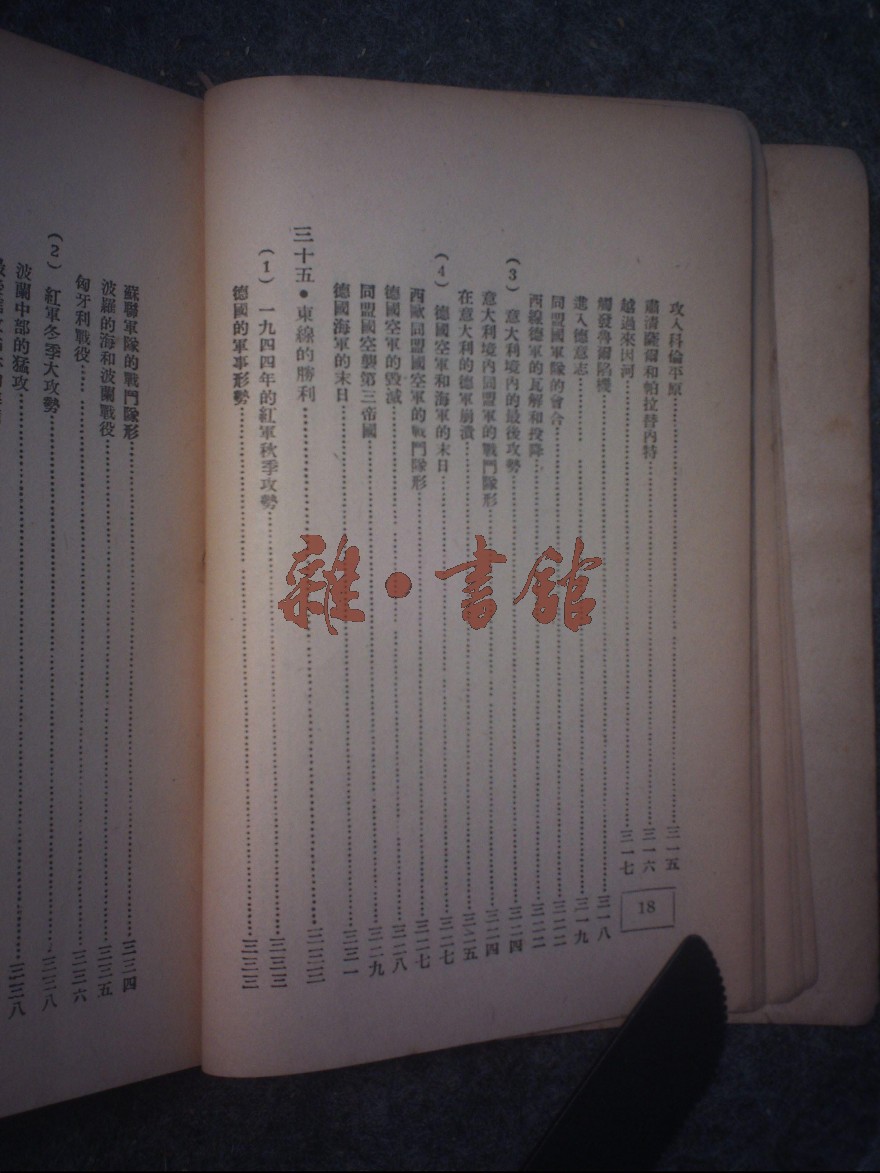 攻入科倫平原……三一五
肅清薩爾和帕拉替內特……三一六
越過來因河……三一七
觸發魯爾陷機……三一八
進入德意志……三一九
同盟國軍隊的會合……三二二
西線德軍的瓦解和投降……三二二
(3) 意大利境內的最後攻勢……三二四
意大利境內同盟軍的戰鬥隊形……三二四
在意大利的德軍崩潰……三二五
(4) 德國空軍和海軍的末日……三二七
西歐同盟國空軍的戰鬥隊形……三二七
德國空軍的毀滅……三二八
同盟國空襲第三帝國……三二九
德國海軍的末日……三三一
三十五•東線的勝利……三三三
(1) 一九四四年的紅軍秋季攻勢……三三三
德國的軍事形勢……三三三
18
蘇聯軍隊的戰鬥隊形……三三四
波羅的海和波蘭戰役……三三五
匈牙利戰役……三三六
(2) 紅軍冬季大攻勢……三三八
波蘭中部的猛攻……三三八
雜•書館